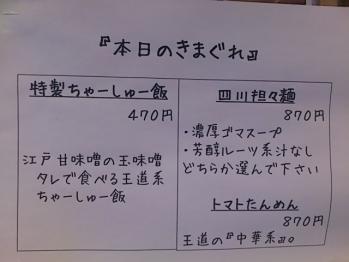 『本日のきまぐれ』
特製ちゃーしゅー飯
470円
江戸甘味噌の玉味噌
タレで食べる王道系
ちゃーしゅー飯
四川担々麺
870円
・濃厚ゴマスープ
・芳醇ルーツ系汁なし
どちらか選んで下さい
トマトたんめん
870円
王道の『中華系』。